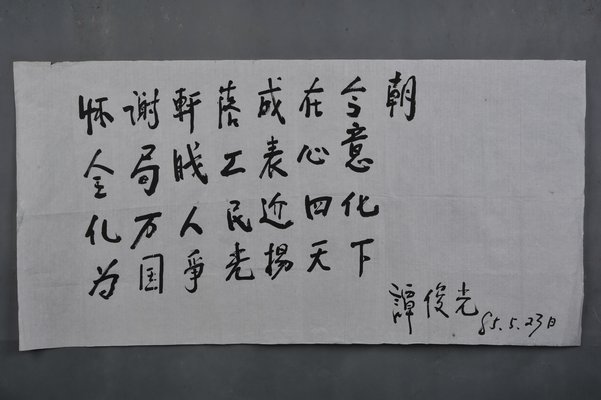 怀谢軒落成在今朝
全局職工表心意
亿万人民迎四化
为国爭光揚天下
譚俊光
85.5.23日